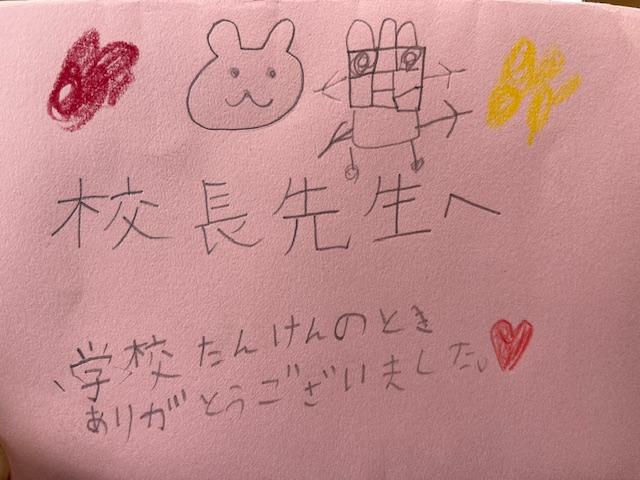 校長先生へ
学校たんけんのとき
ありがとうございました。